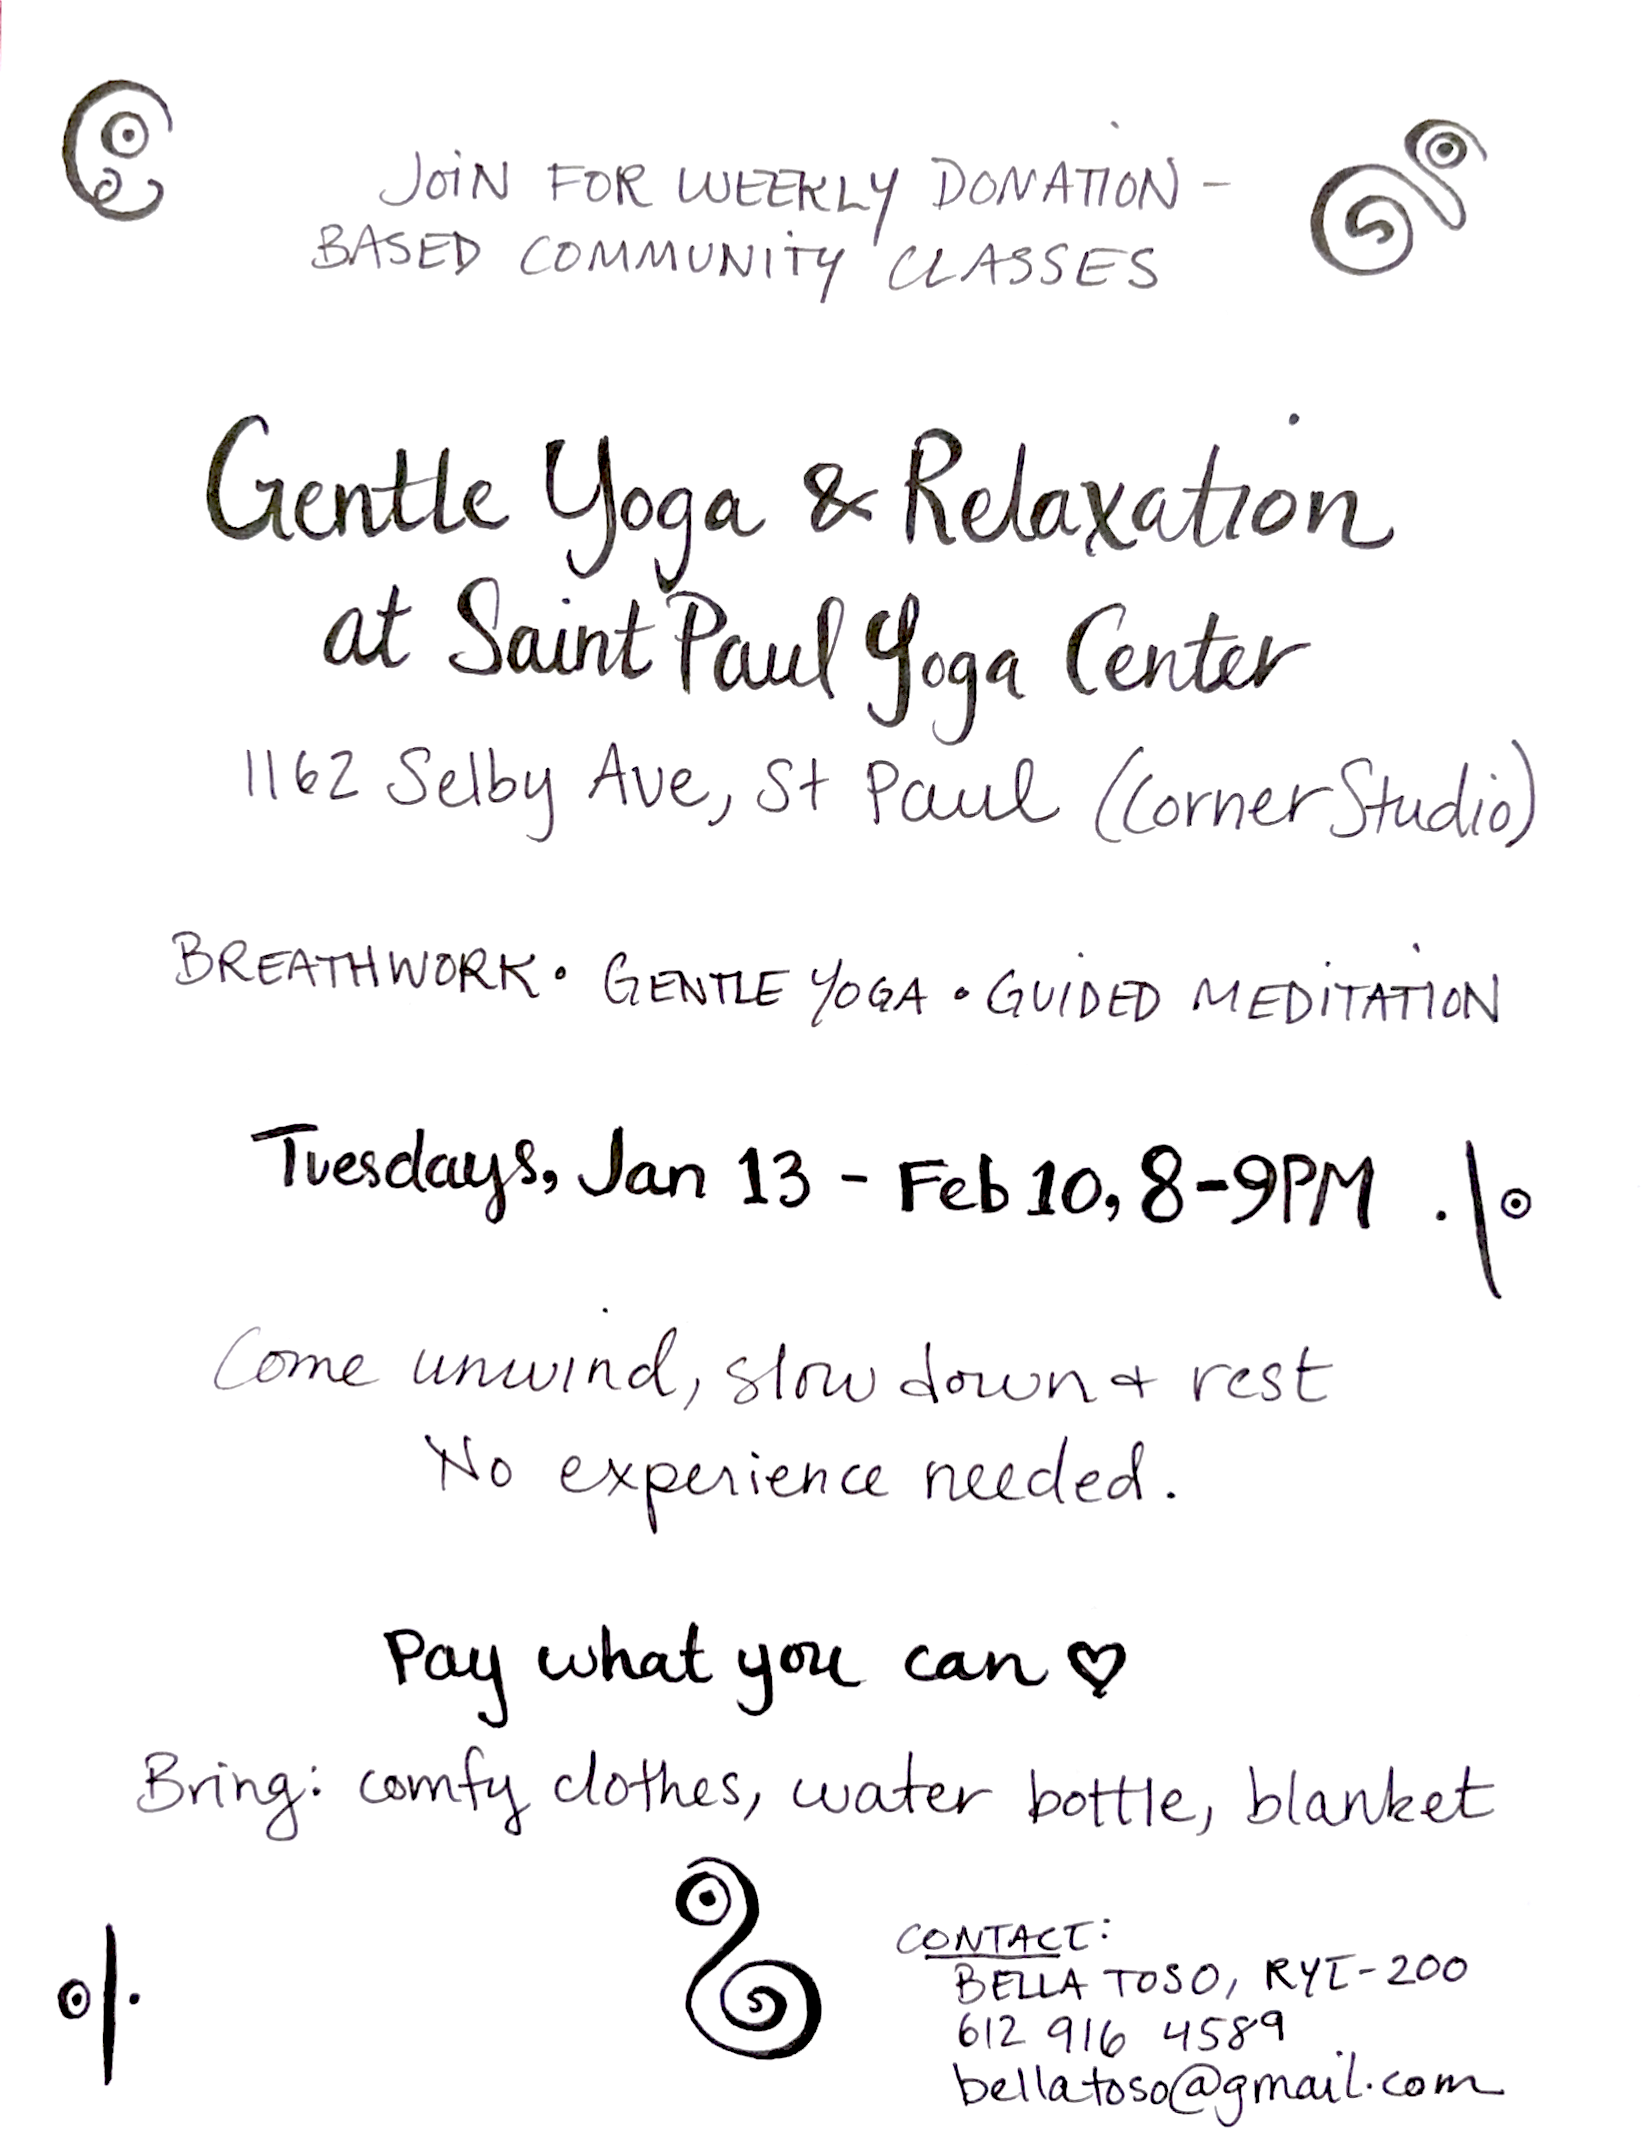 JOIN FOR WEEKLY DONATION-
BASED COMMUNITY CLASSES
Gentle Yoga & Relaxation
at Saint Paul Yoga Center
1162 Selby Ave, St Paul (Corner Studio)
BREATHWORK • GENTLE YOGA • GUIDED MEDITATION
Tuesdays, Jan 13 - Feb 10, 8-9PM
Come unwind, slow down & rest
No experience needed.
Pay what you can ♡
Bring: comfy clothes, water bottle, blanket
CONTACT:
BELLA TOSO, RYT-200
612 916 4589
bellatoso@gmail.com